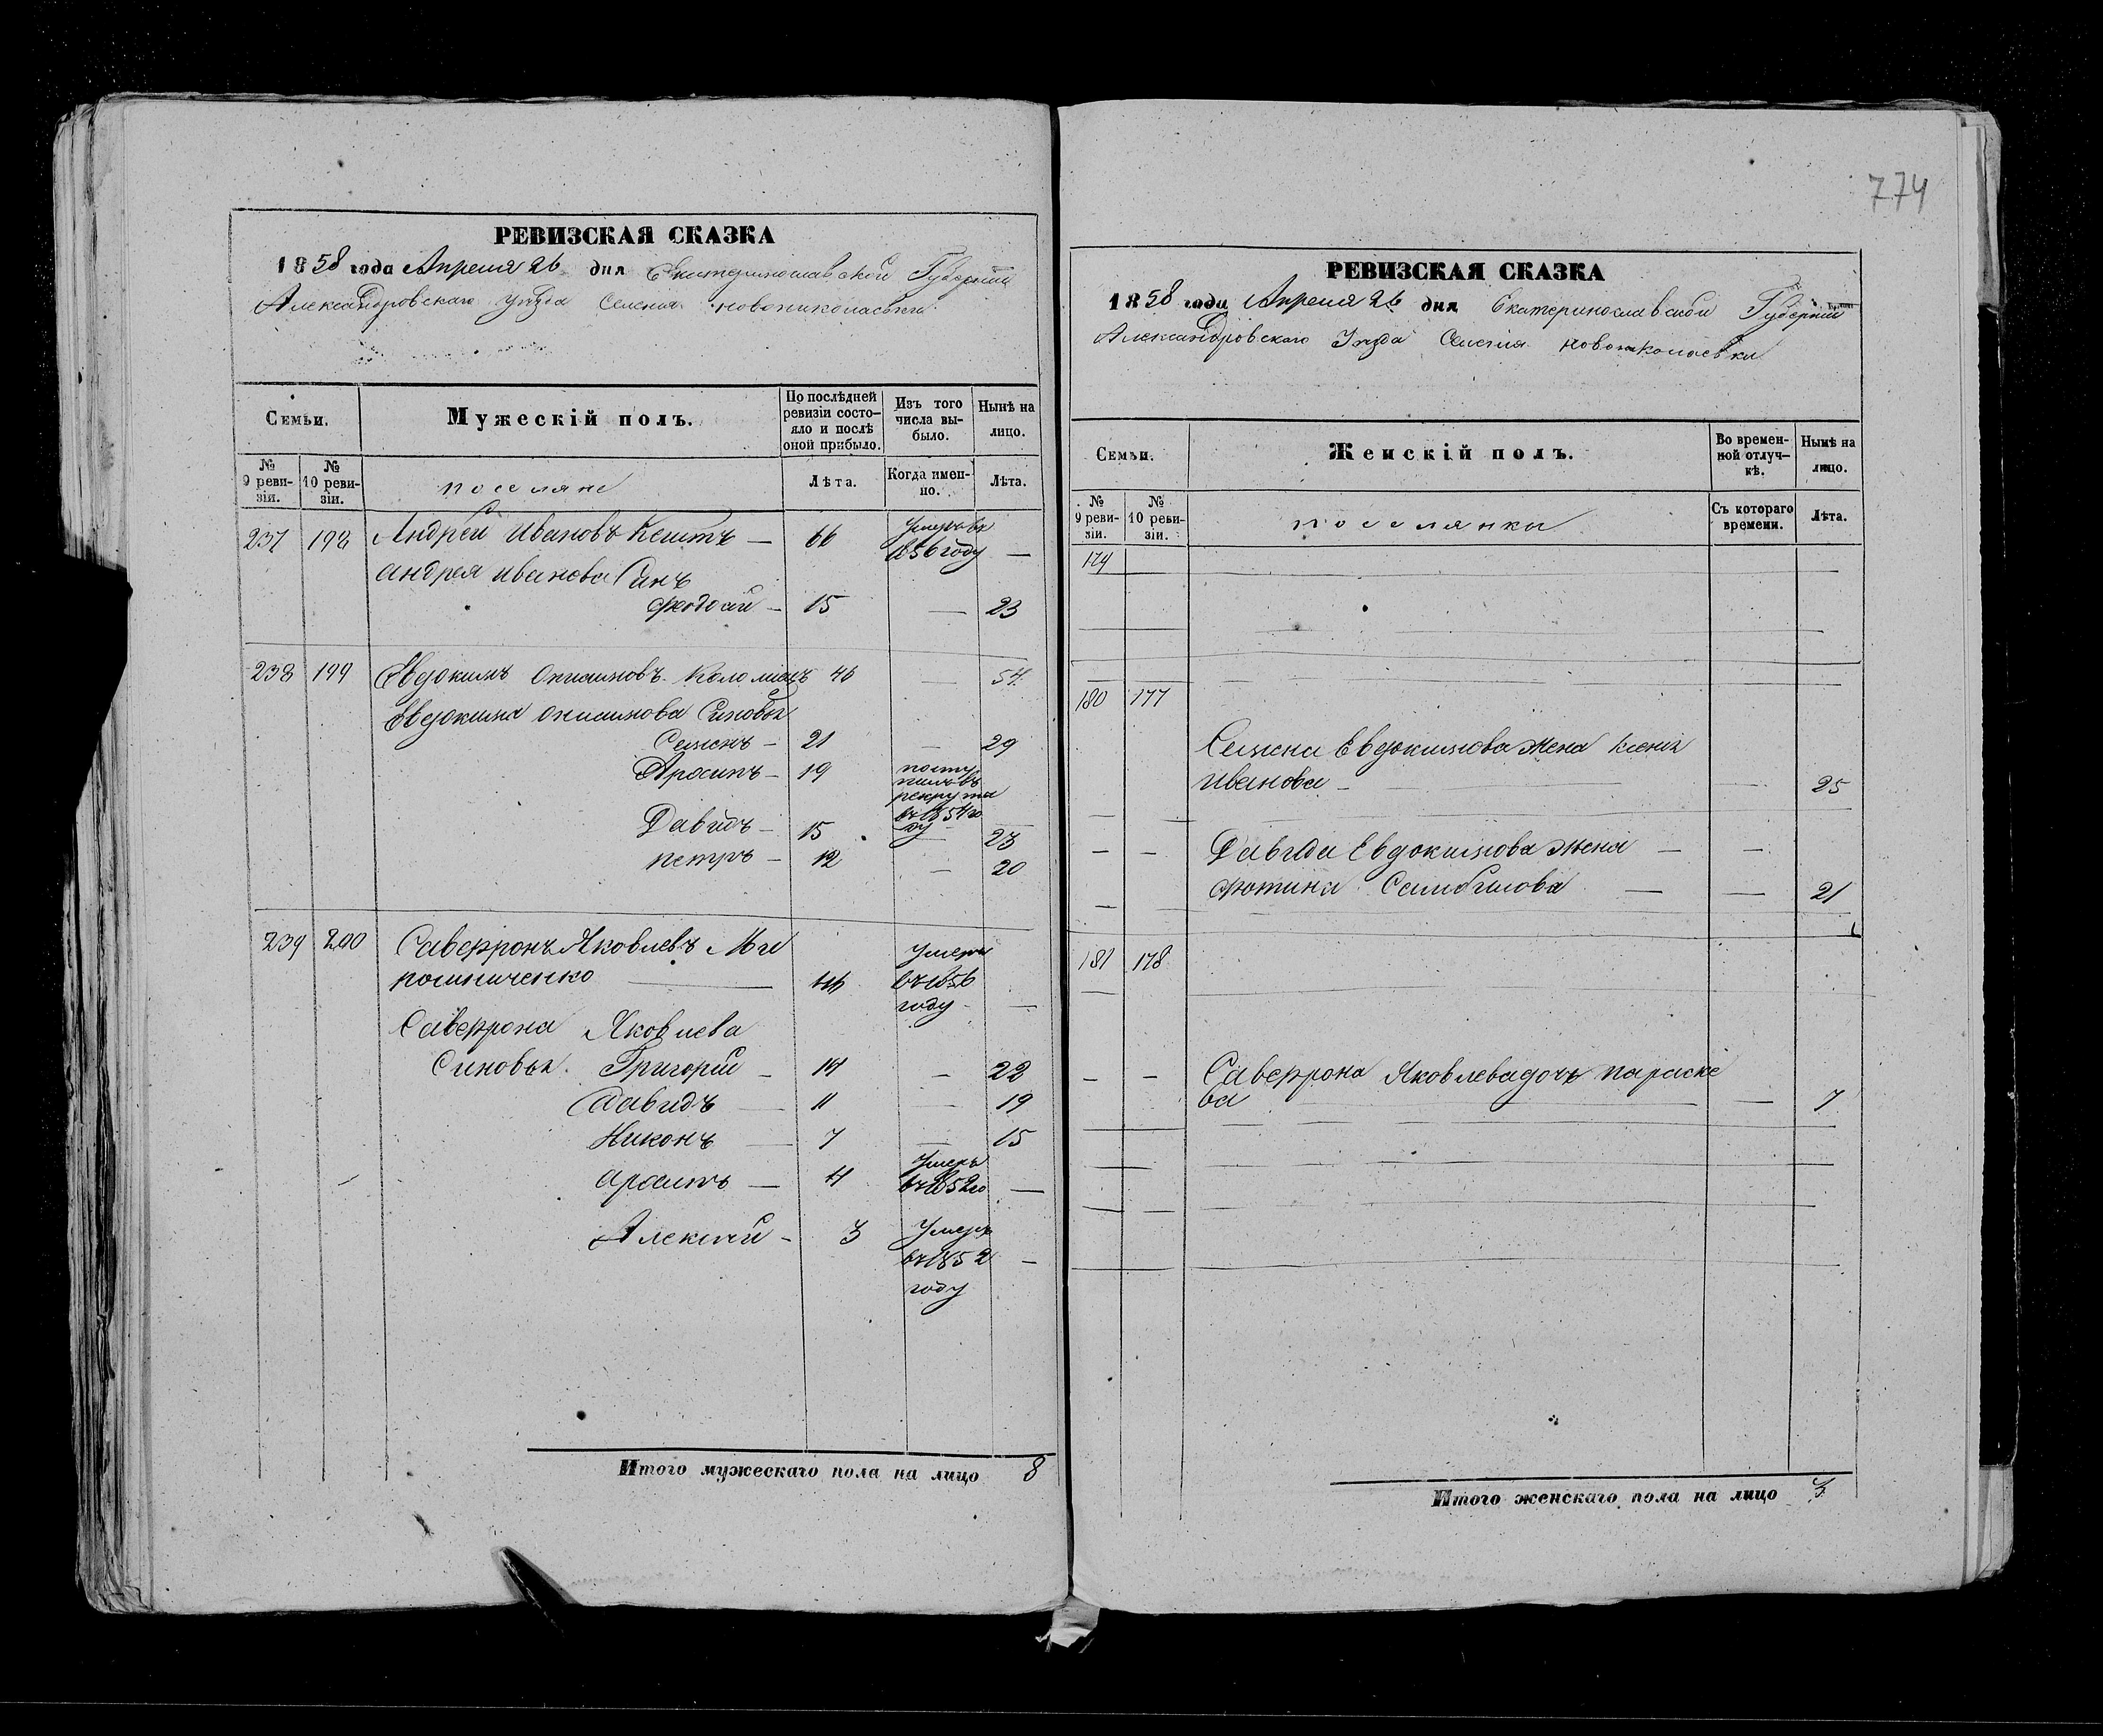 774
РЕВИЗСКАЯ СКАЗКА
1858 года Апреля 26 дня Екатеринославской Губернии
Александровскаго уезда Селения Новониколаевки
Семьи.
Мужескій полъ.
По послѣдней ревизіи состояло и послѣ оной прибыло.
Изъ того числа выбыло.
Нынѣ на лицо.
№ 9 ревизіи.
№ 10 ревизіи.
поселяне
Лѣта.
Когда именно.
Лѣта.
237 198 Андрей Ивановъ — 66 Умеръ въ 1856 году —
андрея иванова Синъ
15 — 23
238 199 Евдокимъ Коломіецъ 46 — 54
Евдокима Синовья
Семенъ — 21 — 29
Аросипъ — 19 поступилъ въ рекрута въ 1854 году —
Давидъ — 15 — 23
петръ — 12 — 20
239 200 Саверронъ Яковлевъ Ми
рошниченко — 46 Умеръ въ 1856 году —
Саверрона Яковлева
Синовья Григорий — 14 — 22
Давидъ — 11 — 19
Никонъ — 7 — 15
4 Умеръ въ 1852 го —
Алексѣй — 3 Умеръ въ 1852 году —
Итого мужескаго пола на лицо 8
РЕВИЗСКАЯ СКАЗКА
1858 года Апреля 26 дня Екатеринославской Губернии
Александровскаго Уезда Селения Новониколаевки
Семьи.
Женскій полъ.
Во временной отлучкѣ.
Нынѣ на лицо.
№ 9 ревизіи.
№ 10 ревизіи.
поселянки
Съ котораго времени.
Лѣта.
179
180 177
Семена Евдокимова жена Ксения
Иванова — 25
— — Давида Евдокимова жена — —
фотина — — 21
181 178
— — Саверрона Яковлева дочь параске
ва — 7
Итого женскаго пола на лицо 3